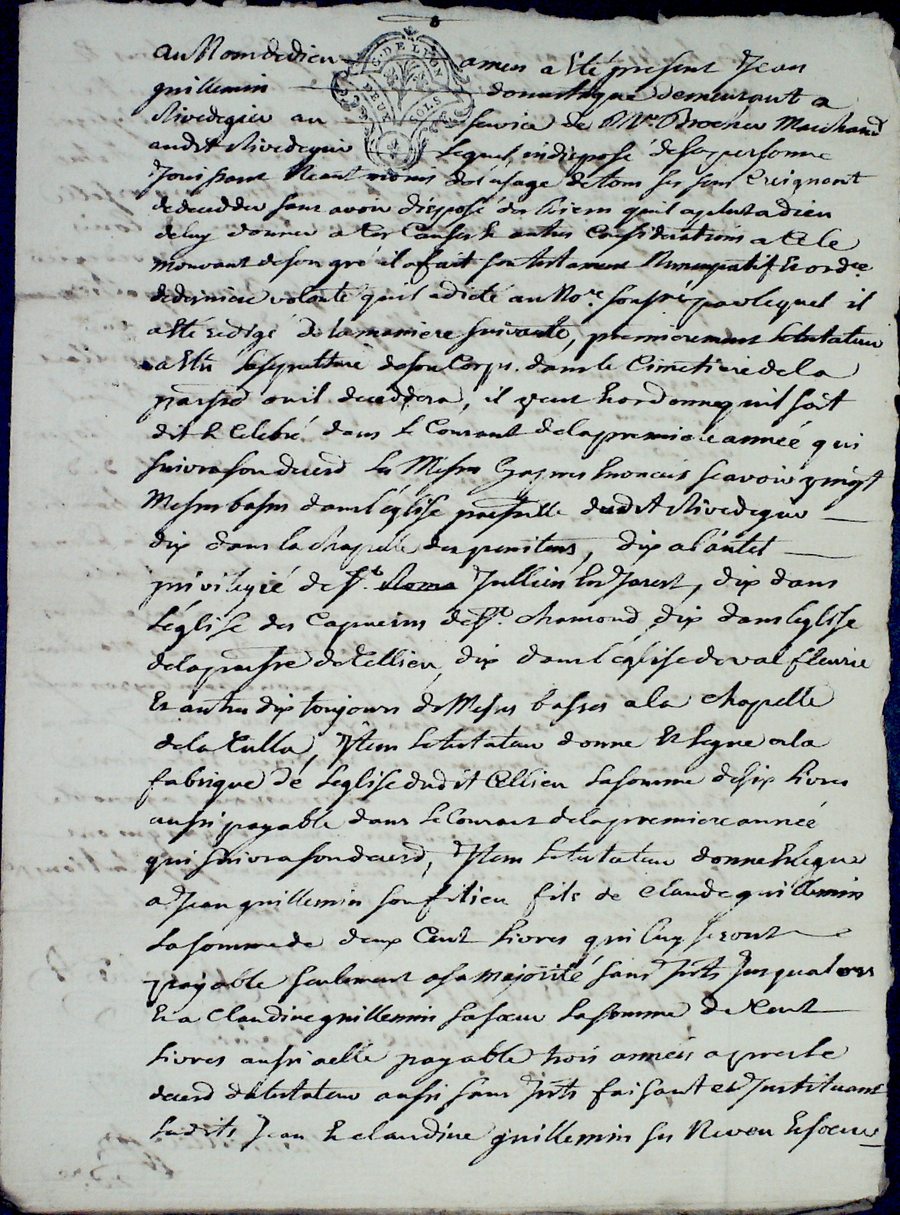 au Nom de dieu amen a Eté present Jean
guillemin domestique demeurant a
Rivedegier au service de Mr. Marchand
audit Rivedegier Lequel indisposé de sa personne
Jouissant Neantmoins de l'usage de tous ses sens Creignant
de deceder sans avoir disposé des biens qu'il a plut a dieu
de luy donner a Ces Causes & autres Considerations a Ce le
mouvant de son gré il a fait son testament Nuncupatif & ordce
de derniere volonté qu'il a dicté au Nore soussne par lequel il
a Eté redigé de la maniere suivante, premierement le testateur
a Elu la sepulture de son Corps dans le Cimetiere de la
parroisse ou il decedera, il veut & ordonne qu'il soit
dit & Celebré dans le Courant de la premiere année qui
suivra son deced les Messes Cy apres Enoncées scavoir vingt
Messes basses dans l'église paroissialle dudit Rivedegier
dix dans la chapelle des penitens, dix a l'autel
privilegié de St. Jullien En Jarest, dix dans
L'église des Capucins de St. chamond dix dans l'eglise
de la paroisse de Cellieu, dix dans l'église de val fleurie
Et autres dix toujours de Messes basses a la chapelle
de la Tulla, Item le testateur donne Et legue a la
fabrique dé Leglise dudit Cellieu la somme de six livres
aussi payable dans le Courant de la premiere année
qui suivra son deced, Item le testateur donne & legue
a Jean guillemin son filieu fils de Claude guillemin
La somme de deux Cent Livres qui luy seront
payable seulement a sa majorité sans Jnts Jusqu'alors
Et a Claudine guillemin sa sœur La somme de Cent
Livres aussi a elle payable trois années apres le
deced du testateur aussi sans Jnts faisant et Jnstituant
Lesdits Jean & Claudine guillemin ses Neveu &